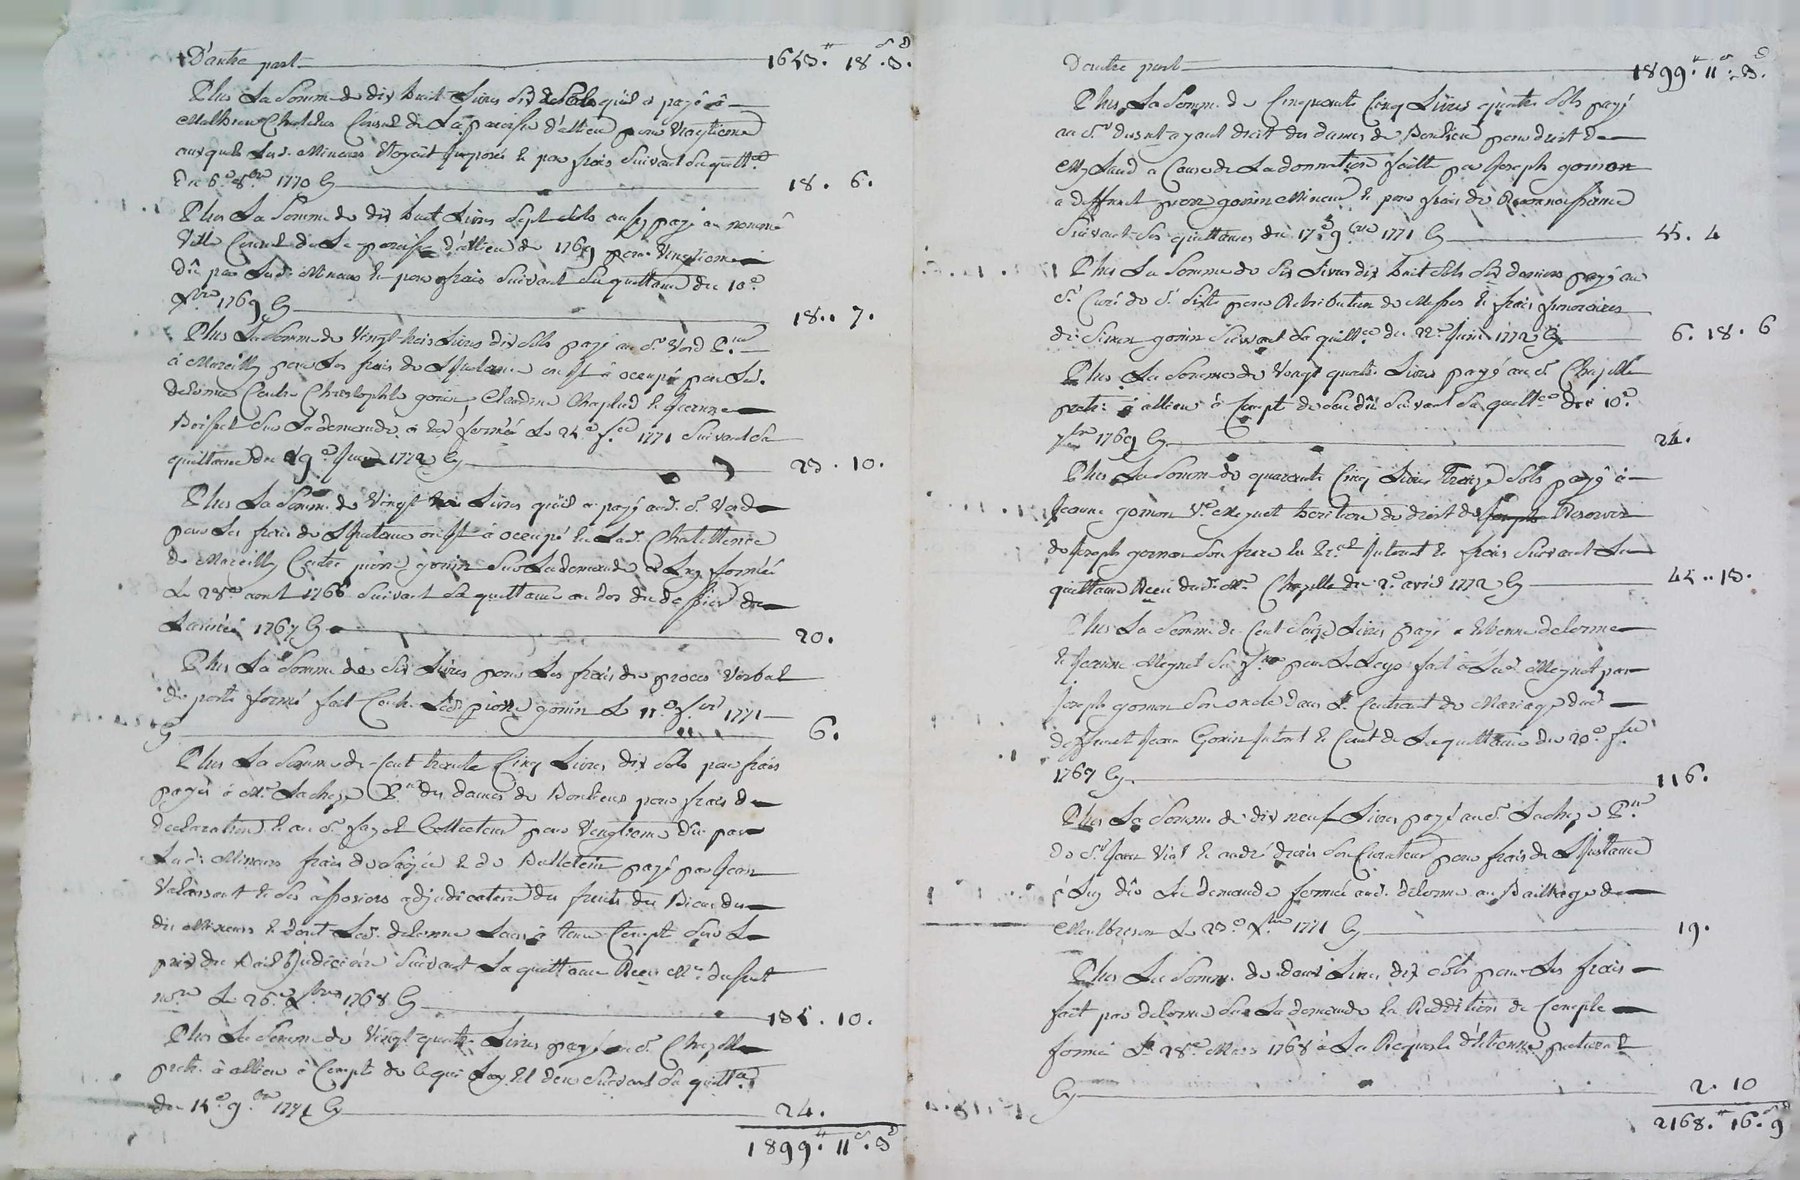 D'autre part 1653.# 18.s 3.d
Plus La Somme de dix huit Livres Six Sols qu'il a payé à
Mathieu Chatelus Consul de La paroisse d'allieu pour Vingtieme
auxquels Lesd. Mineurs Etoyent Imposés & pour frais Suivant Sa quittce
du 6e 8bre 1770 Cy 18. 6.
Plus La Somme de dix huit Livres Sept Sols aussy payé au nommé
Consul de La paroisse d'allieu de 1769 pour Vingtieme
dû par Lesd. Mineurs & pour frais Suivant Sa quittance du 10e
Xbre 1769 Cy 18. 7.
Plus La Somme de Vingt trois Livres dix Sols payé au Sr Verd
à Marcilly pour Les frais de L'Instance ou Il à occupé pour Led.
delorme Contre Christophle gonin Claudine Chaplud &
Sur La demande à Luy formée Le 24e 1771 Suivant Sa
quittance du 29e 1772 Cy 23. 10.
Plus La Somme de Vingt Livres qu'il a payé aud. Sr Verd
pour Les frais de L'Instance ou Il à occupé en Lad. Chatellenie
de Marcilly Contre pierre gonin Sur La demande à Luy formée
Le 28e aout 1766 Suivant Sa quittance au dos du dossier de
L'année 1767 Cy 20.
Plus La Somme de Six Livres pour Les frais du proces Verbal
de porte fermée fait Contre Led. pierre gonin Le 11e 1771
Cy 6.
Plus La Somme de Cent trente Cinq Livres dix Sols pour frais
payés à Mr Lachaze des dames de Bonlieu pour frais de
declaration & au Sr fayol Collecteur pour Vingtieme dû par
Lesd. Mineurs frais de Saisie & de Bulletin payé par Jean
& Ses assosiers adjudicataire des fruits des Biens des
dits Mineurs & dont Led. delorme Leurs à tenu Compte Sur Le
prix du Bail Judiciaire Suivant La quittance Recu Me dusert
nore Le 26e Xbre 1768 Cy 135. 10.
Plus La Somme de Vingt quatre Livres payé au Sr Chazelle
pretre à allieu à Compte de Ce qui Luy Est deu Suivant Sa quittce
du 15e 9bre 1771 Cy 24.
1899.# 11.s 3d
D'autre part 1899.# 11.s 3.d
Plus La Somme de Cinquante Cinq Livres quatre Sols payé
au Sr dusert ayant droit des dames de Bonlieu pour droit de
My Laud à Cause de La donnation faitte par Joseph gonon
a deffunct pierre gonin Mineur & pour frais de Reconnoissance
Suivant Ses quittances du 17e 9bre 1771 Cy 55. 4
Plus La Somme de Six Livres dix huit Sols Six deniers payé au
Sr Curé de St Sixte pour Retribution de Messes & frais funeraires
de Simon gonin Suivant Sa quittce du 22e Juin 1772 Cy 6. 18. 6
Plus La Somme de Vingt quatre Livres payé au Sr Chazelle
pretre à allieu à Compte de Son dû Suivant Sa quittce du 10e
7bre 1769 Cy 24.
Plus La Somme de quarante Cinq Livres Treize Sols payé à
Jeanne gonon Ve heritiere de droit de Reserver
de Joseph gonon Son frere En Principal Interet & frais Suivant La
quittance Recu dud. Me Chazelle du 2e avril 1772 Cy 45. 13.
Plus La Somme de Cent Seize Livres payé a Etienne delorme
& Jeanne Meynet Sa pour Le Legs fait à Lad. Meynet par
Joseph gonon Son oncle dans Le Contract de Mariage dud.
deffunct Jean Gonin Interet & Cout de La quittance du 20e
1767 Cy 116.
Plus La Somme de dix neuf Livres payé au Sr Lachaze
de Sr Jean Vial & andré Son Curateur pour frais de L'Instance
à Luy dû Sur demande formée aud. delorme au Bailliage de
Montbrison Le 23e Xbre 1771 Cy 19.
Plus La Somme de deux Livres dix Sols pour Les frais
fait par delorme Sur La demande En Reddition de Compte
formée Le 28e Mars 1768 à La Requeste d'Etienne
Cy 2. 10
2168.# 16.s 9d